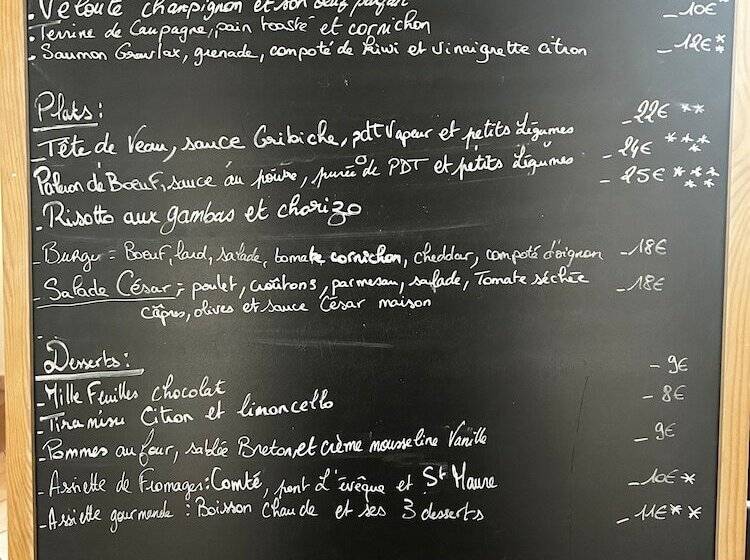 - Velouté champignon et son oeuf parfait - 10€*
- Terrine de Campagne, pain toasté et cornichon
- Saumon Gravlax, grenade, compoté de Kiwi et vinaigrette citron - 12€**
Plats :
- Tête de Veau, sauce Gribiche, pdt Vapeur et petits Légumes - 22€ **
Paleron de Boeuf, sauce au poivre, purée de PDT et petits Légumes - 24€ ***
- Risotto aux gambas et chorizo - 25€ ***
- Burger = Boeuf, lard, salade, tomate cornichon, cheddar, compoté d'oignon - 18€
- Salade César ; poulet, croûtons, parmesan, salade, Tomate séchée - 18€
câpres, olives et sauce César maison
Desserts :
- Mille Feuilles chocolat - 9€
- Tiramisu Citron et limoncello - 8€
- Pommes au four, sablée Breton, et crème mousseline Vanille - 9€
- Assiette de Fromages : Comté, pont l'évêque et St Maure - 10€ *
- Assiette gourmande : Boisson Chaude et ses 3 desserts - 11€ **